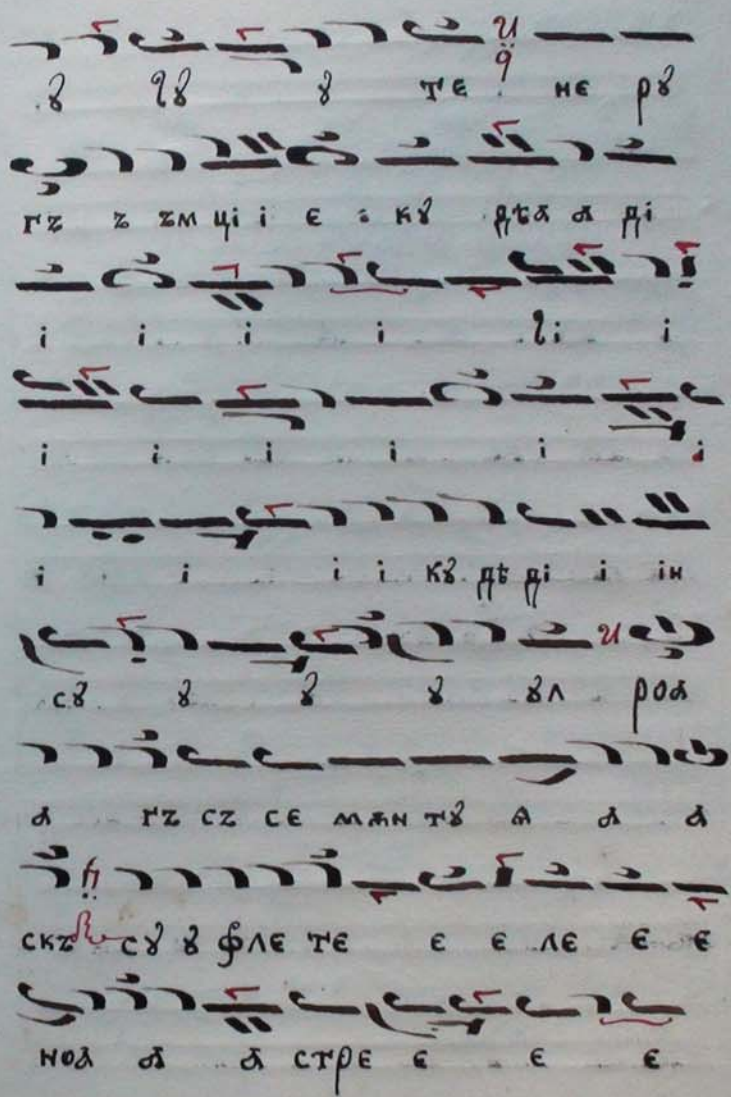 ꙋ чꙋ ꙋ те не рꙋ
гъ ъ ъм ці і є : кꙋ дѣа а ді
і і і і чі і
і і і і і і
і і і і кꙋ дѣ ді і ін
сꙋ ꙋ ꙋ ꙋ ꙋл роа
а гъ съ се мѫн тꙋ а а а
скъ сꙋ ꙋ фле те е е ле е е
ноа а а стре е е е